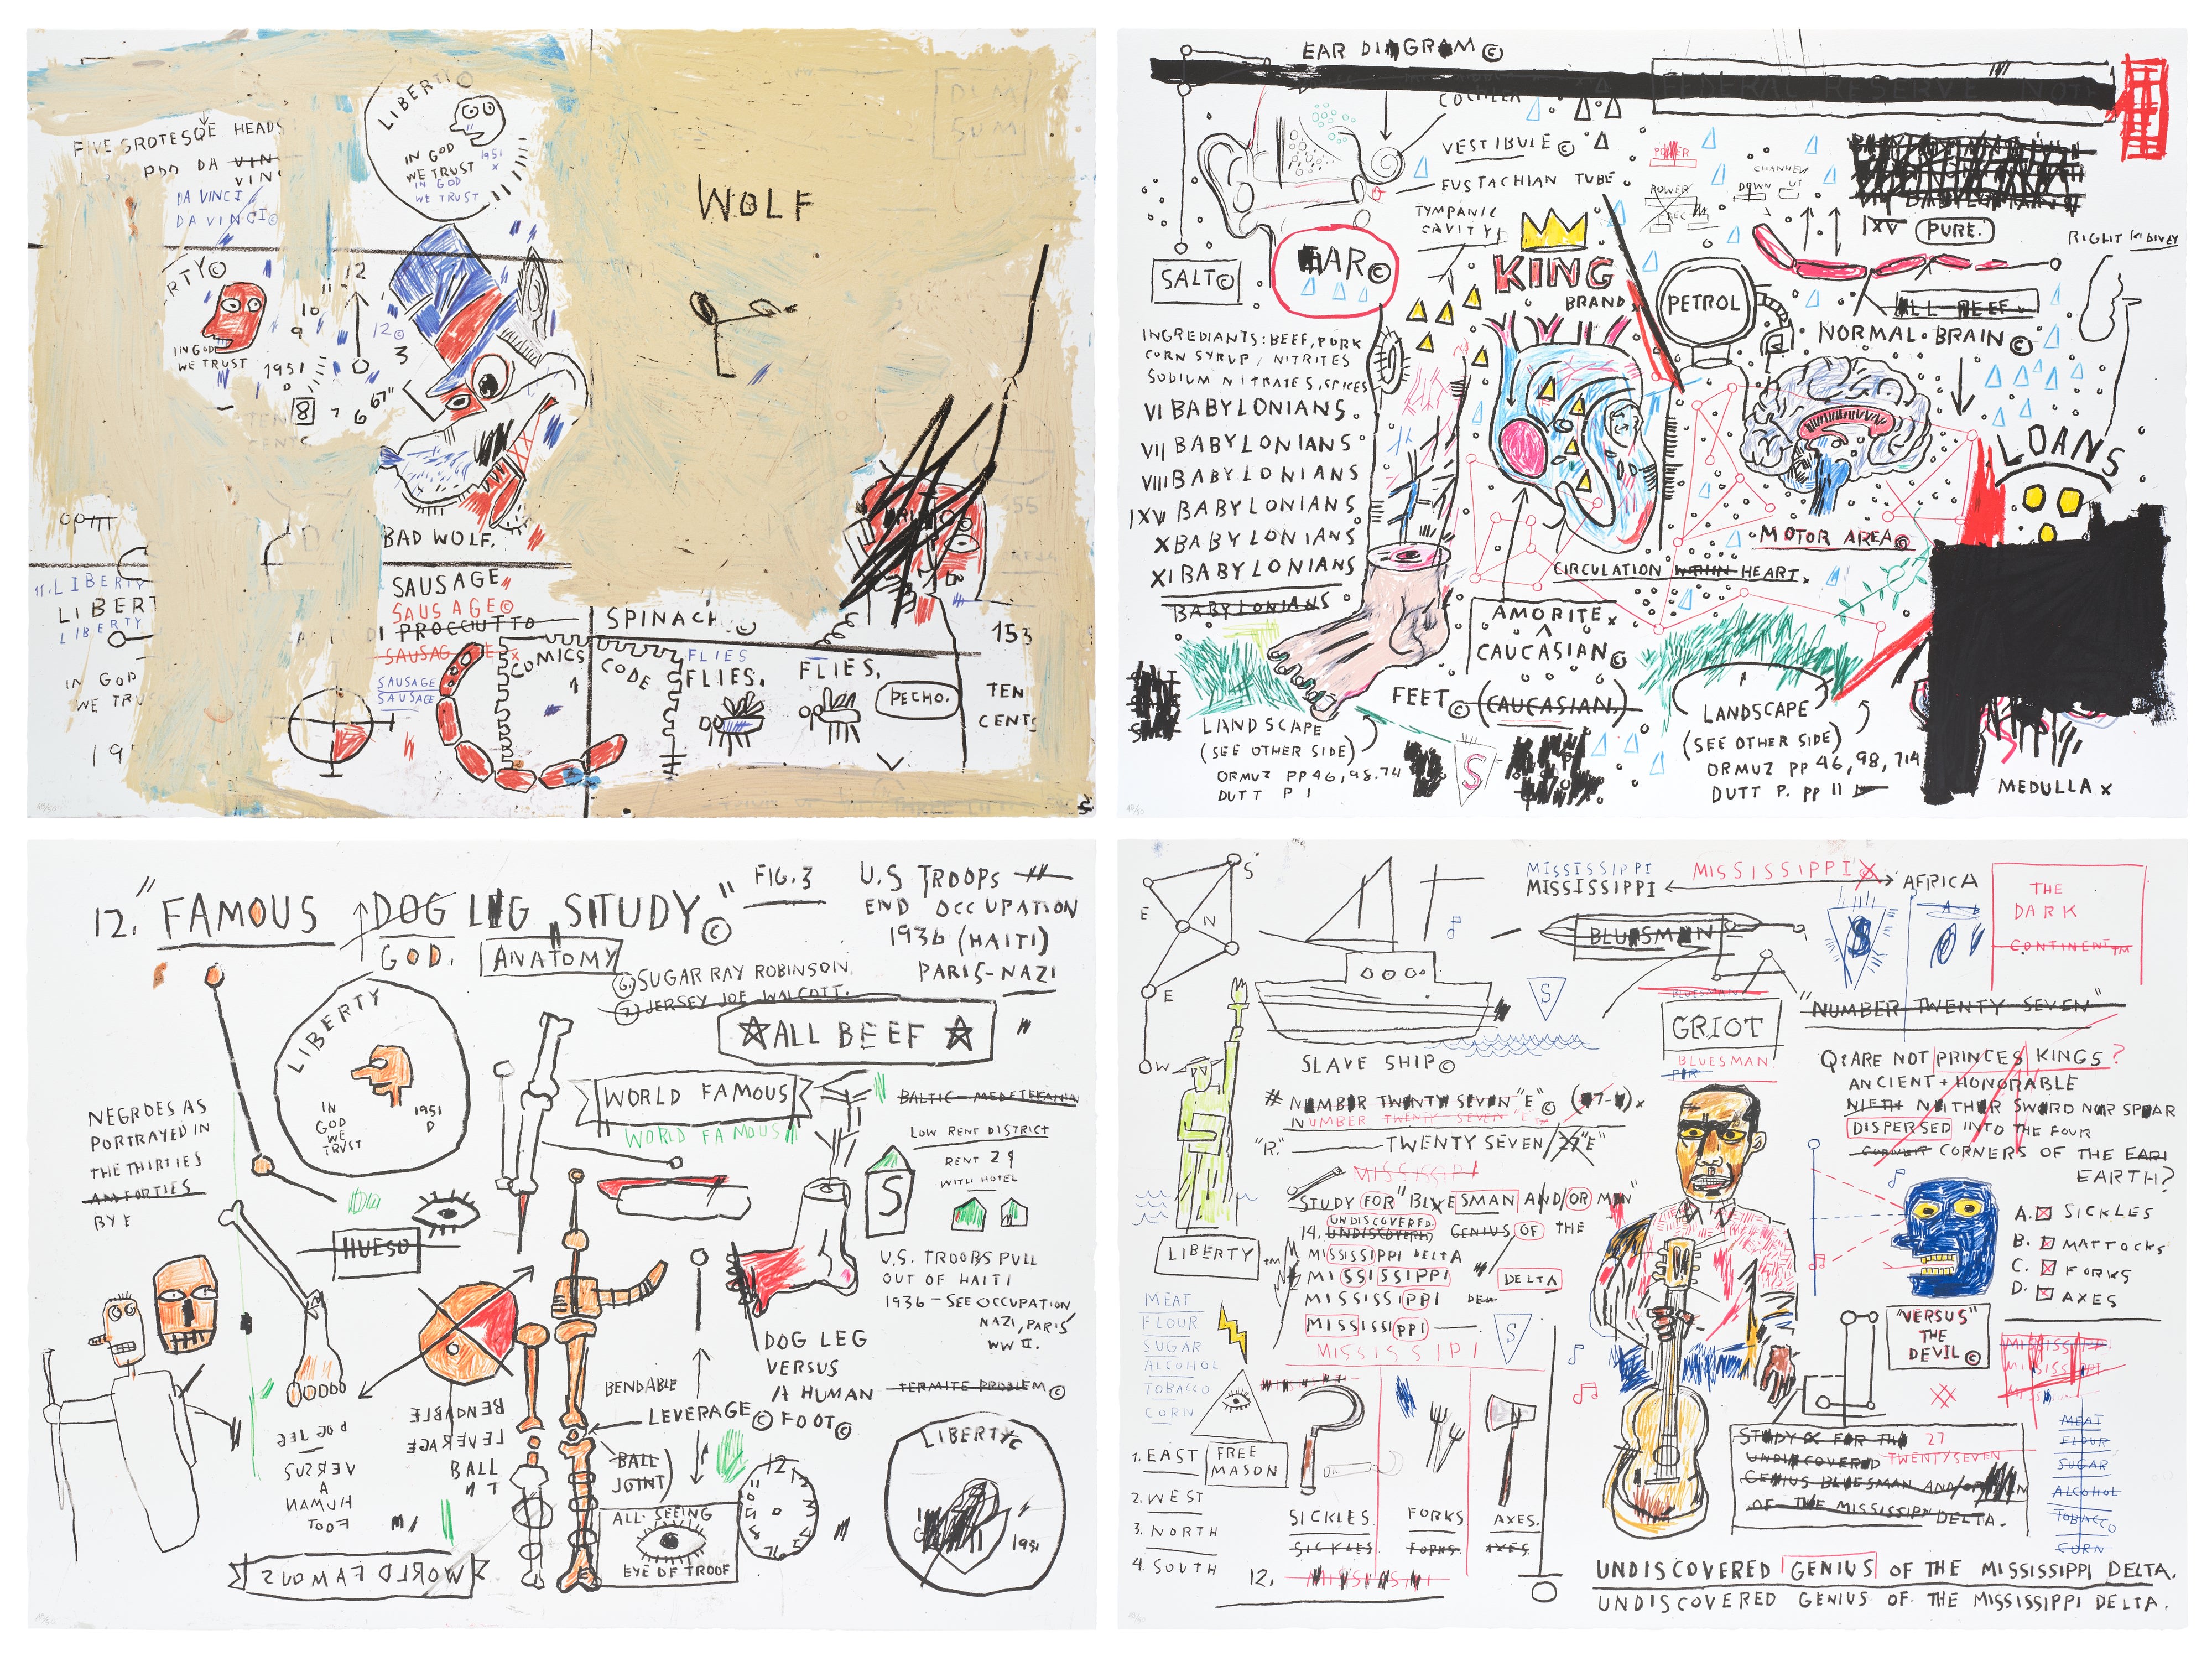 LIBERTY©
IN GOD
WE TRUST
1951
IN GOD
WE TRUST
FIVE GROTESQE HEADS
DA VIN
VINC
DA VINCI
DA VINCI©
WOLF
RTY©
IN GOD
WE TRUST
1951
D
12
11
10
9
12©
3
8
7
6
67"
TEN
CENTS
BAD WOLF.
11. LIBERTY
LIBERT
LIBERTY
IN GOD
WE TRU
19
SAUSAGE
SAUSAGE©
PROCCIUTTO
SAUSAGE
SAUSAGE
SAUSAGE
COMICS
CODE
SPINACH.©
FLIES
FLIES.
FLIES.
PECHO.
153
TEN
CENTS
EAR DIAGRAM©
FEDERAL RESERVE NOTE
COCHLEA
VESTIBULE©
EUSTACHIAN TUBE
TYMPANIC
CAVITY
SALT©
EAR©
KING
BRAND
POWER
POWER
REC
CHANNEL
DOWN UT
PETROL
IXV PURE.
RIGHT KIDNEY
ALL BEEF
NORMAL BRAIN©
LOANS
INGREDIANTS: BEEF, PORK
CORN SYRUP, NITRITES
SODIUM NITRATES, SPICES
VI BABYLONIANS.
VII BABYLONIANS
VIII BABYLONIANS
IXV BABYLONIANS
X BABYLONIANS
XI BABYLONIANS
BABYLONIANS
MOTOR AREA©
CIRCULATION WITHIN HEART.
AMORITE x
CAUCASIAN©
FEET© (CAUCASIAN.)
LANDSCAPE
(SEE OTHER SIDE)
ORMUZ PP 46, 98. 74
DUTT P 1
S
LANDSCAPE
(SEE OTHER SIDE)
ORMUZ PP 46, 98, 714
DUTT P. PP 11
MEDULLA x
12. "FAMOUS DOG LEG STUDY"©
GOD.
ANATOMY
FIG. 3
U.S TROOPS
END OCCUPATION
1936 (HAITI)
PARIS-NAZI
6. SUGAR RAY ROBINSON.
7. JERSEY JOE WALCOTT.
ALL BEEF
LIBERTY
IN
GOD
WE
TRUST
1951
D
WORLD FAMOUS
WORLD FAMOUS
BALTIC - MEDETERANIA
LOW RENT DISTRICT
RENT 29
WITH HOTEL
S
NEGROES AS
PORTRAYED IN
THE THIRTIES
AM FORTIES
BY E
HUESO
U.S. TROOPS PULL
OUT OF HAITI
1936 - SEE OCCUPATION
NAZI, PARIS
WW II.
DOG LEG
VERSUS
A HUMAN
FOOT©
TERMITE PROBLEM©
BENDABLE
LEVERAGE©
BALL
JOINT
BENDABLE
LEVERAGE
BALL
DOG LEG
VERSUS
A
HUMAN
FOOT
WORLD FAMOUS
ALL-SEEING
EYE OF TROOF
12
LIBERTY©
1951
S
E
N
E
W
MISSISSIPPI
MISSISSIPPI
MISSISSIPPI
AFRICA
THE
DARK
CONTINENT™
BLUESMAN
S
S
SLAVE SHIP©
BLUESMAN
GRIOT
BLUESMAN
"NUMBER TWENTY SEVEN"
Q: ARE NOT PRINCES KINGS?
ANCIENT + HONORABLE
NIETH NEITHER SWORD NOR SPEAR
DISPERSED INTO THE FOUR
CORNER CORNERS OF THE EARI
EARTH?
# NUMBER TWENTY SEVEN "E"©
NUMBER TWENTY SEVEN "E"™
"R." TWENTY SEVEN/27"E"
MISSISSIPI
STUDY FOR "BLUESMAN AND/OR MEN"
UNDISCOVERED
14. UNDISCOVERED GENIUS OF THE
MISSISSIPPI DELTA
MISSISSIPPI
DELTA
MISSISSIPPI DEL
MISSISSIPPI
MISSISSIPI
LIBERTY
™
MEAT
FLOUR
SUGAR
ALCOHOL
TOBACCO
CORN
S
A. SICKLES
B. MATTOCKS
C. FORKS
D. AXES
"VERSUS"
THE
DEVIL©
MISSISSIPPI
MISSISSIPPI
FREE
MASON
1. EAST
2. WEST
3. NORTH
4. SOUTH
SICKLES
SICKLES
FORKS
FORKS
AXES.
AXES
12. MISSISSIPPI
STUDY FOR THE 27
UNDISCOVERED TWENTYSEVEN
GENIUS BLUESMAN AND/OR MEN
OF THE MISSISSIPPI DELTA.
MEAT
FLOUR
SUGAR
ALCOHOL
TOBACCO
CORN
UNDISCOVERED GENIUS OF THE MISSISSIPPI DELTA.
UNDISCOVERED GENIUS OF THE MISSISSIPPI DELTA.